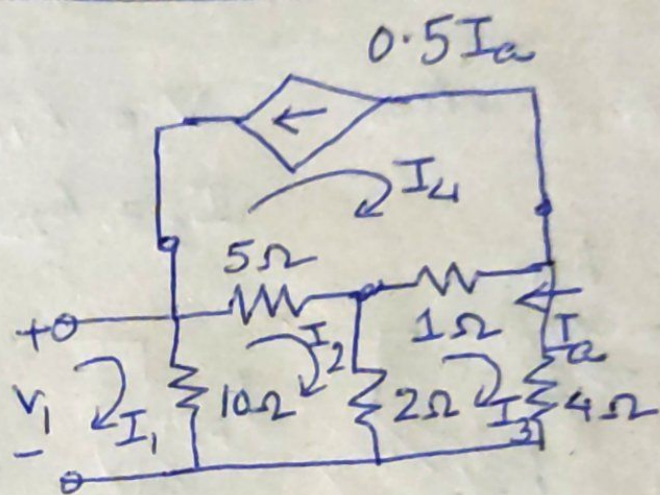 0.5Ia
I4
5Ω
+
1Ω
Ia
I2
V1
I1
10Ω
2Ω
I3
4Ω
-